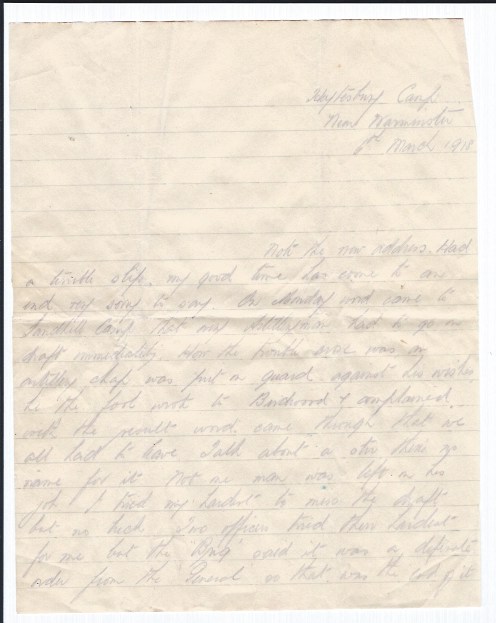 Heytesbury Camp
Near Warminster
6th March 1918
Note the new address. Had
a terrible stife. my good time has come to an
end very sorry to say. On Monday word came to
Sandhill Camp that every Artilleryman had to go on
draft immediately. How the trouble arose was an
artillery chap was put on guard against his wishes
he the fool wrote to Birdwood & complained.
with the result word came through that we
all had to leave. Talk about a stir theres no
name for it. Not one man was left in his
job I tried my hardest to miss the draft
but no luck. Two officers tried their hardest
for me but the said it was a definite
order from the General so that was the end of it